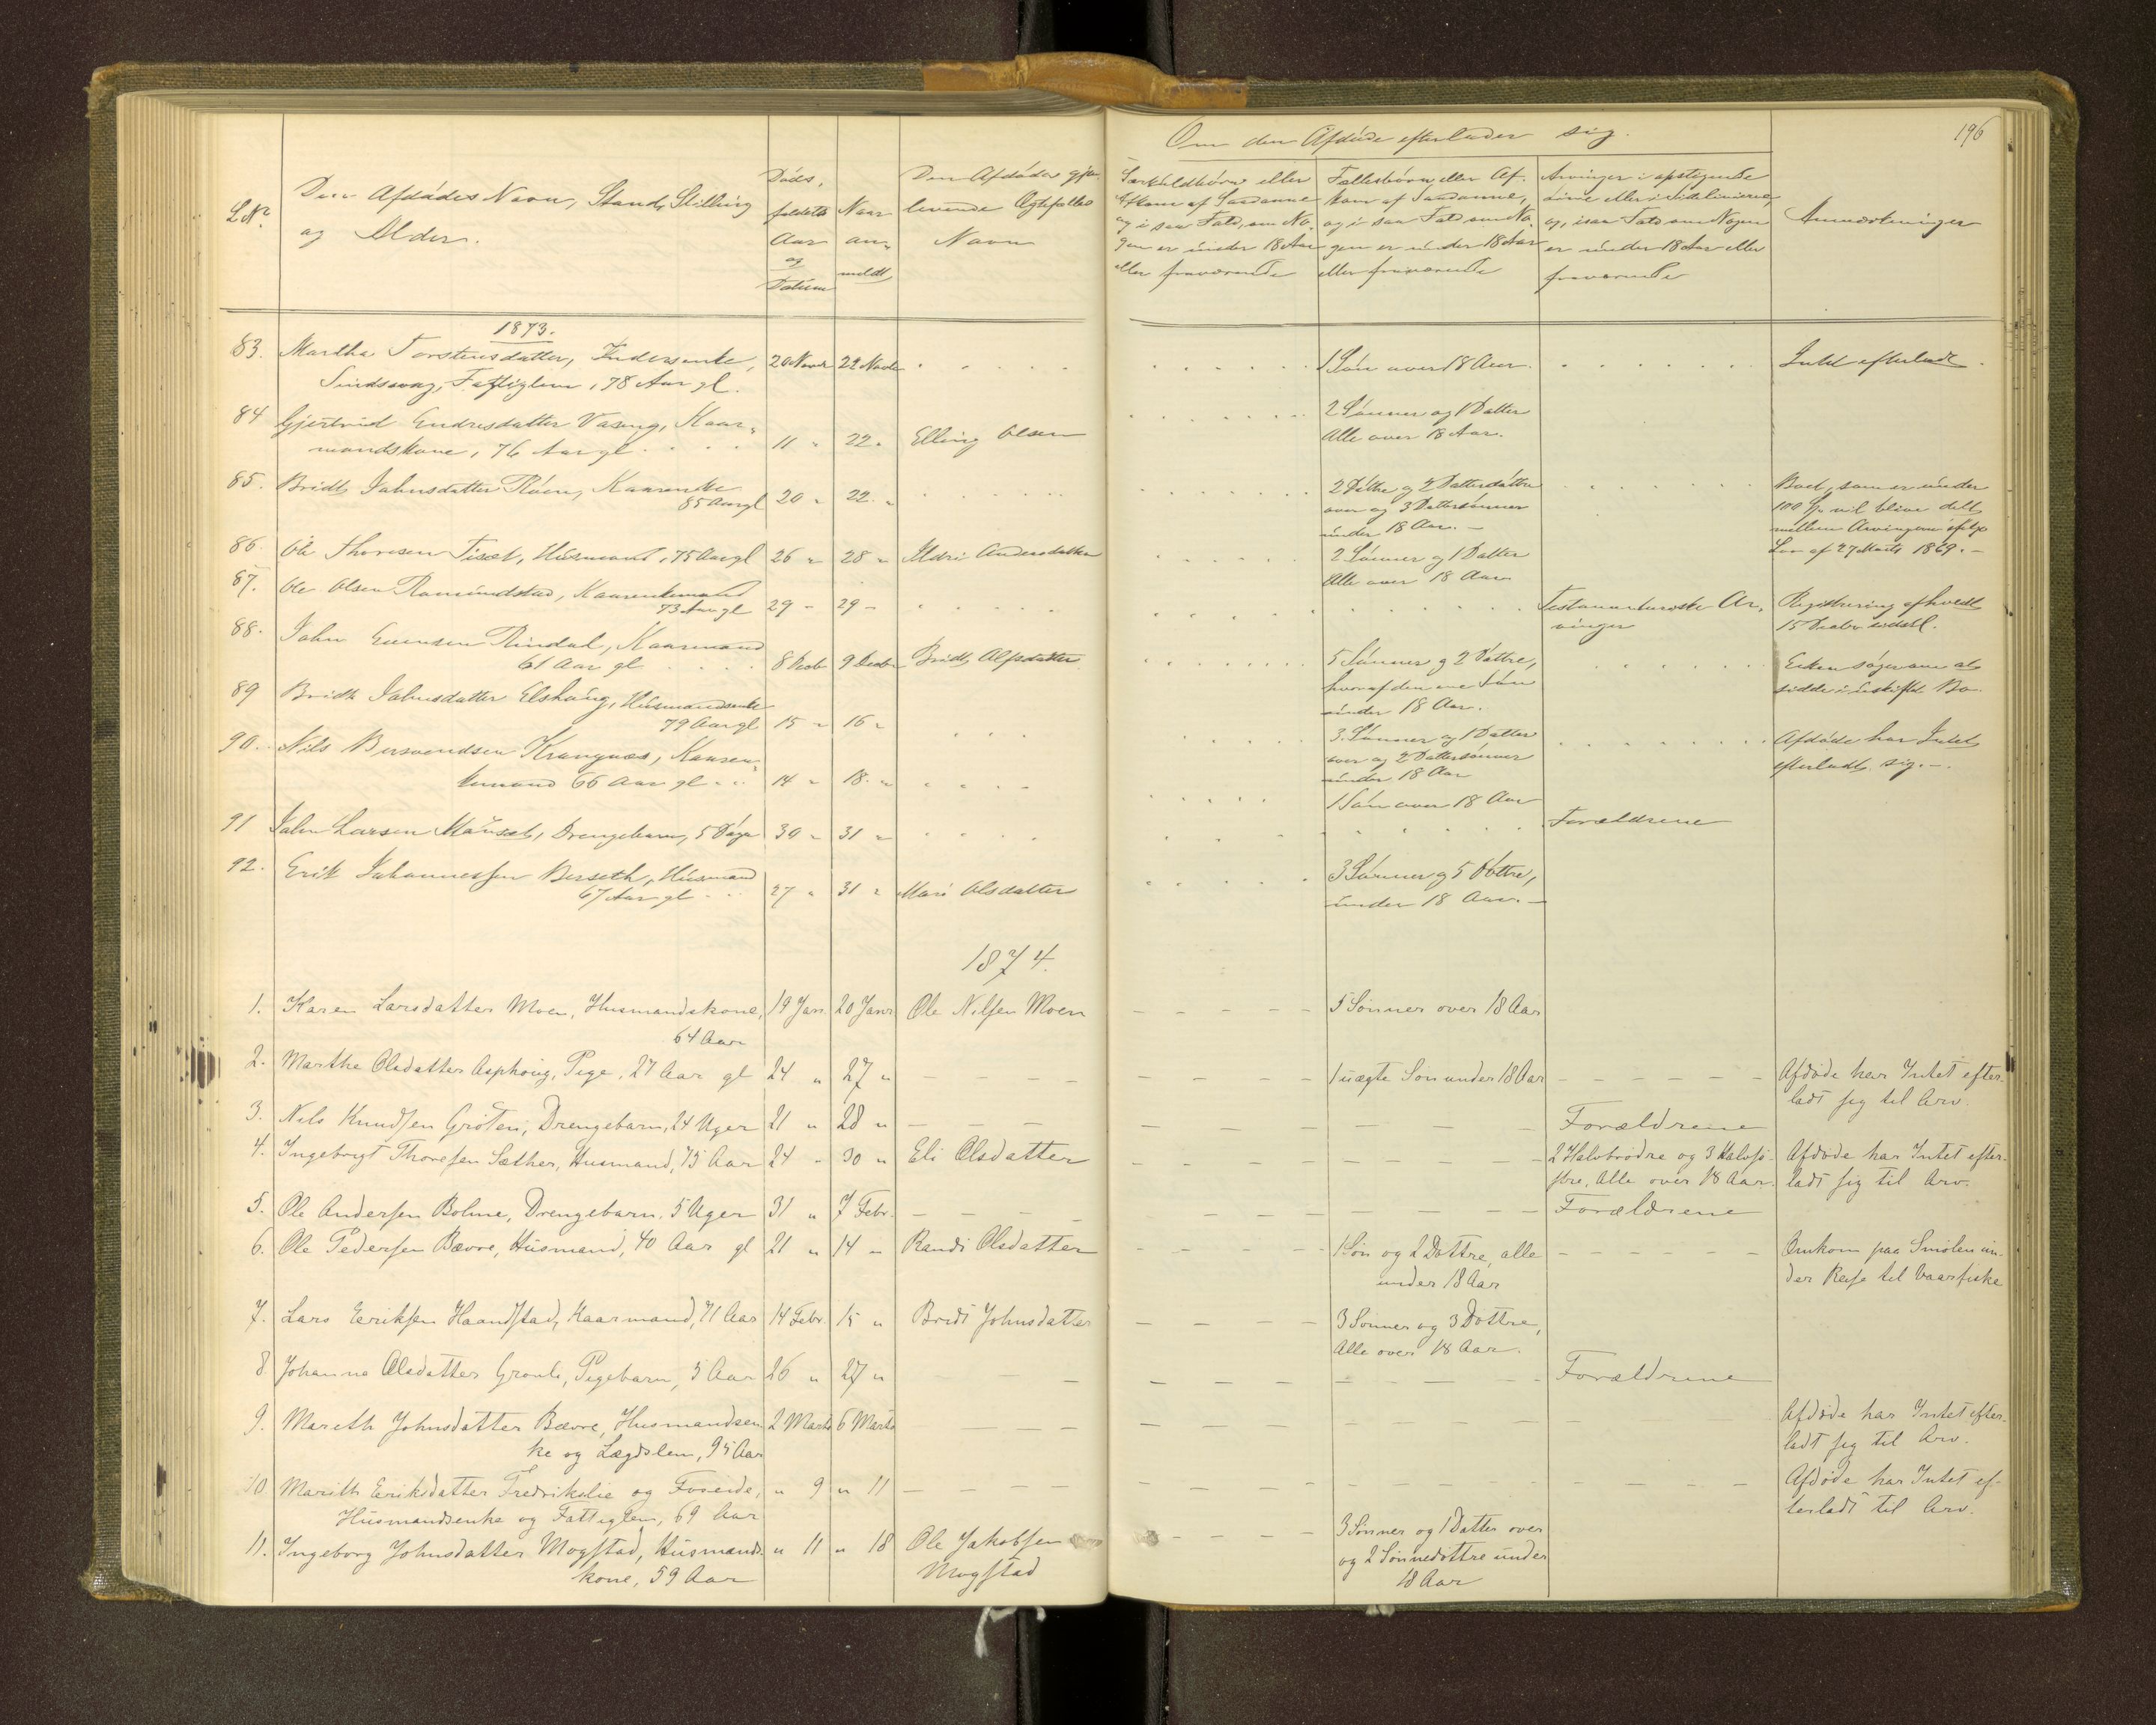 196
Om den Afdøde efterlader sig.
L.No.
Den Afdødes Navn, Stand, Stilling
og Alder.
Døds,
faldets
Aar
og
Datum
Naar
an,
meldt
Den Afdødes gjen,
levende Ægtefælles
Navn
Særkuldbørn eller
Afkom af Saadanne
og i saa Fald, om No,
gen er under 18 Aar
eller fraværende
Fællesbørn eller Af,
kom af Saadanne,
og i saa Fald om No,
gen er under 18 Aar
eller fraværende
Arvinger i opstigende
Linie eller i Sidelinierne,
og, i saa Fald om Nogen
er under 18 Aar eller
fraværende
Anmærkninger
1873.
83. Martha Torstensdatter, 20 Novbr 22 Novbr 1 Søn over 18 Aar. Intet efterladt.
Fattiglem, 78 Aar gl.
84 Gjertrud Endresdatter Vaseng, Kaar, 2 Sønner og 1 Datter
mandskone, 76 Aar gl 11 " 22 " Elling Olsen Alle over 18 Aar.
85. Bridt Johnsdatter Røen, Kaarenke 20 " 22 " 2 Døttre og 2 Datterdøttre Boet, som er under
85 Aar gl over og 3 Dattersønner 100 Sp. vil blive delt
under 18 Aar. mellem Arvingerne ifølge
Lov af 27 Marts 1869.
86 Ole Thoresen Tiset, Husmand, 75 Aar gl 26 " 28 " Ildri Andersdatter 2 Sønner og 1 Datter
Alle over 18 Aar
87. Ole Olsen Romundstad, Kaarenkemand
73 Aar gl 29 - 29 - Testamentariske Ar, Registrering afholdt
vinger 15 Decbr
88. John Evensen Rindal, Kaarmand
61 Aar gl 8 Decbr 9 Decbr Bridt Alfsdatter 5 Sønner og 2 Døttre, Enken søger om at
hvoraf den ene Søn sidde i uskiftet Bo.
under 18 Aar.
89 Bridt Johnsdatter Elshaug, Husmandsenke
79 Aar gl 15 " 16 " 3 Sønner og 1 Datter Afdøde har Intet
over og 2 Dattersønner efterladt sig.
under 18 Aar
90. Nils Bersvendsen Krangnæs, Kaaren,
kemand 66 Aar gl 14 " 18 " 1 Søn over 18 Aar
91 John Larsen Maaset, Drengebarn, 5 Dage 30 " 31 " Forældrene
92. Erik Johannessen Berseth, Husmand
67 Aar gl 27 " 31 " Mari Olsdatter 3 Sønner og 5 Døttre,
under 18 Aar.
1874.
1. Karen Larsdatter Moen, Husmandskone, 19 Jan 20 Janr Ole Nilsen Moen 5 Sønner over 18 Aar
64 Aar
2. Marthe Olsdatter Asphoug, Pige, 27 Aar gl 24 " 27 " 1 uægte Søn under 18 Aar Afdøde har Intet efter-
ladt sig til Arv.
3. Nils Knudsen Grøten, Drengebarn, 24 Uger 21 " 28 " Forældrene
4. Ingebrigt Thoresen Sæther, Husmand, 75 Aar 24 " 30 " Eli Olsdatter 2 Halvbrødre og 3 Halvsø- Afdøde har Intet efter-
stre, Alle over 18 Aar. ladt sig til Arv.
5. Ole Andersen Bolme, Drengebarn, 5 Uger 31 " 7 Febr. Forældrene
6. Ole Pedersen Bævre, Husmand, 40 Aar gl 21 " 14 " Randi Olsdatter 1 Søn og 2 Døttre, alle Omkom paa Smølen un-
under 18 Aar der Reise til Vaarfiske
7. Lars Eriksen Haandstad, Kaarmand, 71 Aar 14 Febr. 15 " Bridt Johnsdatter 3 Sønner og 3 Døttre,
Alle over 18 Aar.
8 Johanna Olsdatter Gronli, Pigebarn, 5 Aar 26 " 27 " Forældrene
9. Mareth Johnsdatter Bævre, Husmandsen 2 Marts 6 Marts Afdøde har Intet efter-
ke og Lægdslem, 95 Aar ladt sig til Arv.
10 Marith Eriksdatter Fredrikslie og Foseide, " 9 " 11 Afdøde har Intet ef-
Husmandsenke og Fattiglem, 69 Aar terladt til Arv.
11. Ingeborg Johnsdatter Mogstad, Husmands- " 11 " 18 Ole Jakobsen 3 Sønner og 1 Datter over
kone, 59 Aar Mogstad og 2 Sønnedøttre under
18 Aar